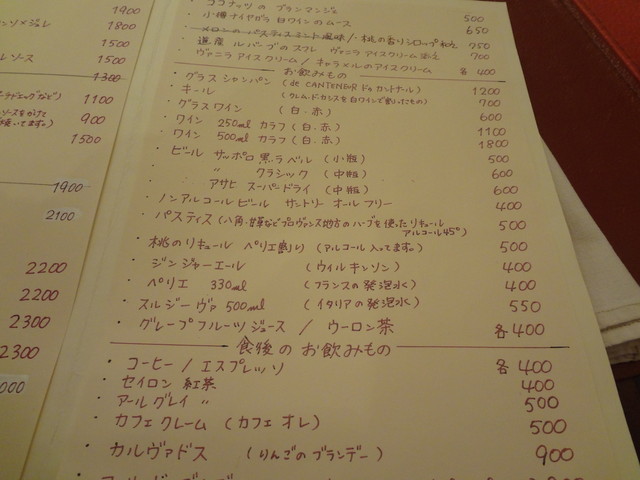 1900
ンソメジュレ 1800
1500
ルソース 1500
1300
1100
ソースをかけて
900
1500
1900
2100
2200
2200
2300
2300
000
・ココナッツのブランマンジェ 500
・小樽ナイヤガラ白ワインのムース 650
・メロンのパスティスミント風味/桃の香りシロップ和え 750
・道産ルバーブのスフレ ヴァニラアイスクリーム添え 700
・ヴァニラアイスクリーム/キャラメルのアイスクリーム 各400
お飲みもの
・グラスシャンパン (de CANTENEUR ドゥカントナール) 1200
・キール (クレームドカシスを白ワインで割ったもの) 700
・グラスワイン (白.赤) 600
・ワイン 250ml カラフ (白.赤) 1100
・ワイン 500ml カラフ (白.赤) 1800
・ビール サッポロ黒ラベル (小瓶) 500
・〃 クラシック (中瓶) 600
・アサヒ スーパードライ (中瓶) 600
・ノンアルコールビール サントリー オールフリー 400
・パスティス (八角.甘草などプロヴァンス地方のハーブを使ったリキュール 500
アルコール45°)
・桃のリキュール ペリエ割り (アルコール入ってます。) 500
・ジンジャーエール (ウィルキンソン) 400
・ペリエ 330ml (フランスの発泡水) 400
・スルジーヴァ 500ml (イタリアの発泡水) 550
・グレープフルーツジュース / ウーロン茶 各400
食後のお飲みもの
・コーヒー / エスプレッソ 各400
・セイロン 紅茶 400
・アールグレイ 〃 500
・カフェクレーム (カフェオレ) 500
・カルヴァドス (りんごのブランデー) 900